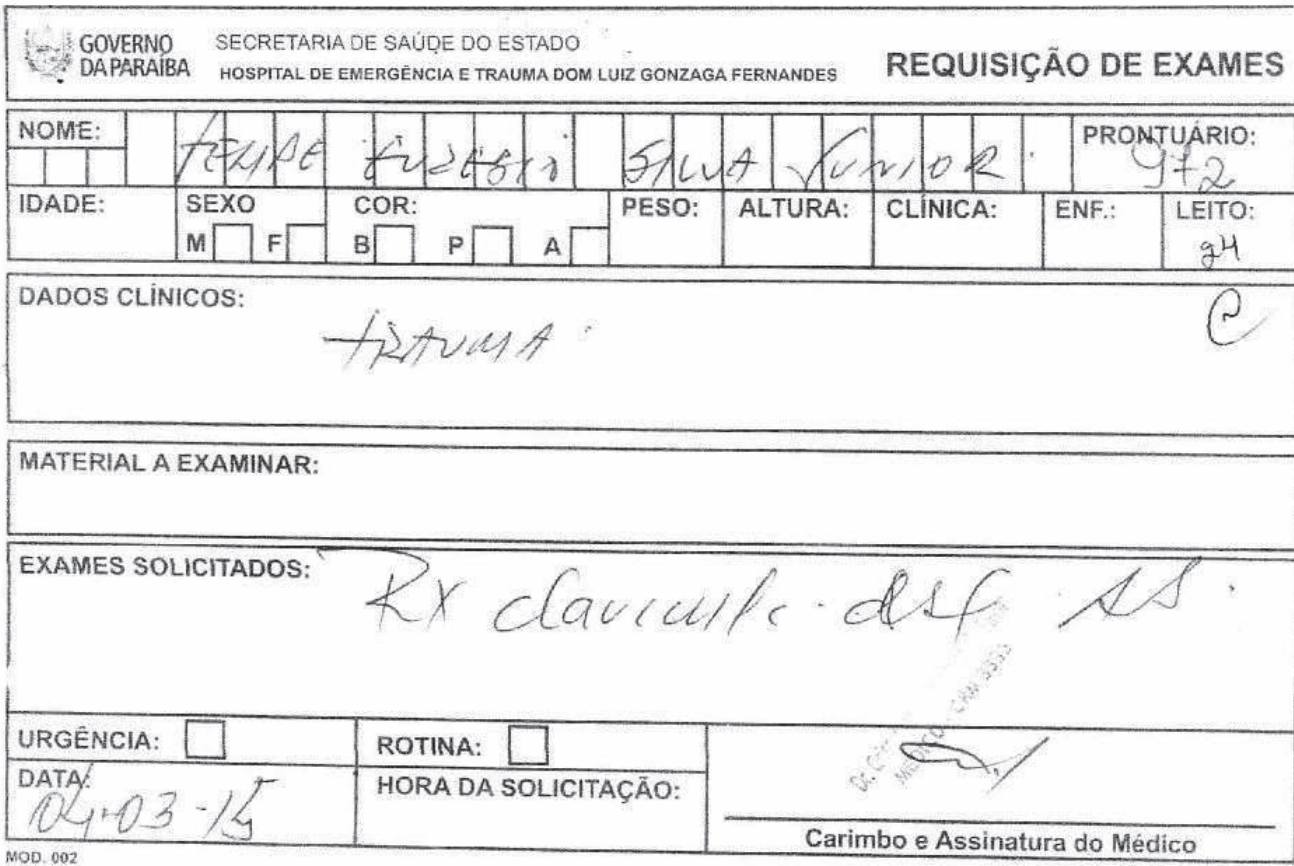 GOVERNO DA PARAÍBA
SECRETARIA DE SAÚDE DO ESTADO
HOSPITAL DE EMERGÊNCIA E TRAUMA DOM LUIZ GONZAGA FERNANDES
REQUISIÇÃO DE EXAMES
NOME: SILVA JUNIOR
PRONTUÁRIO: 972
IDADE: SEXO M F COR: B P A PESO: ALTURA: CLÍNICA: ENF.: LEITO:
DADOS CLÍNICOS:
TRAUMA
MATERIAL A EXAMINAR:
EXAMES SOLICITADOS: RX
URGÊNCIA: ROTINA:
DATA: 04-03-15
HORA DA SOLICITAÇÃO:
Carimbo e Assinatura do Médico
MOD. 002